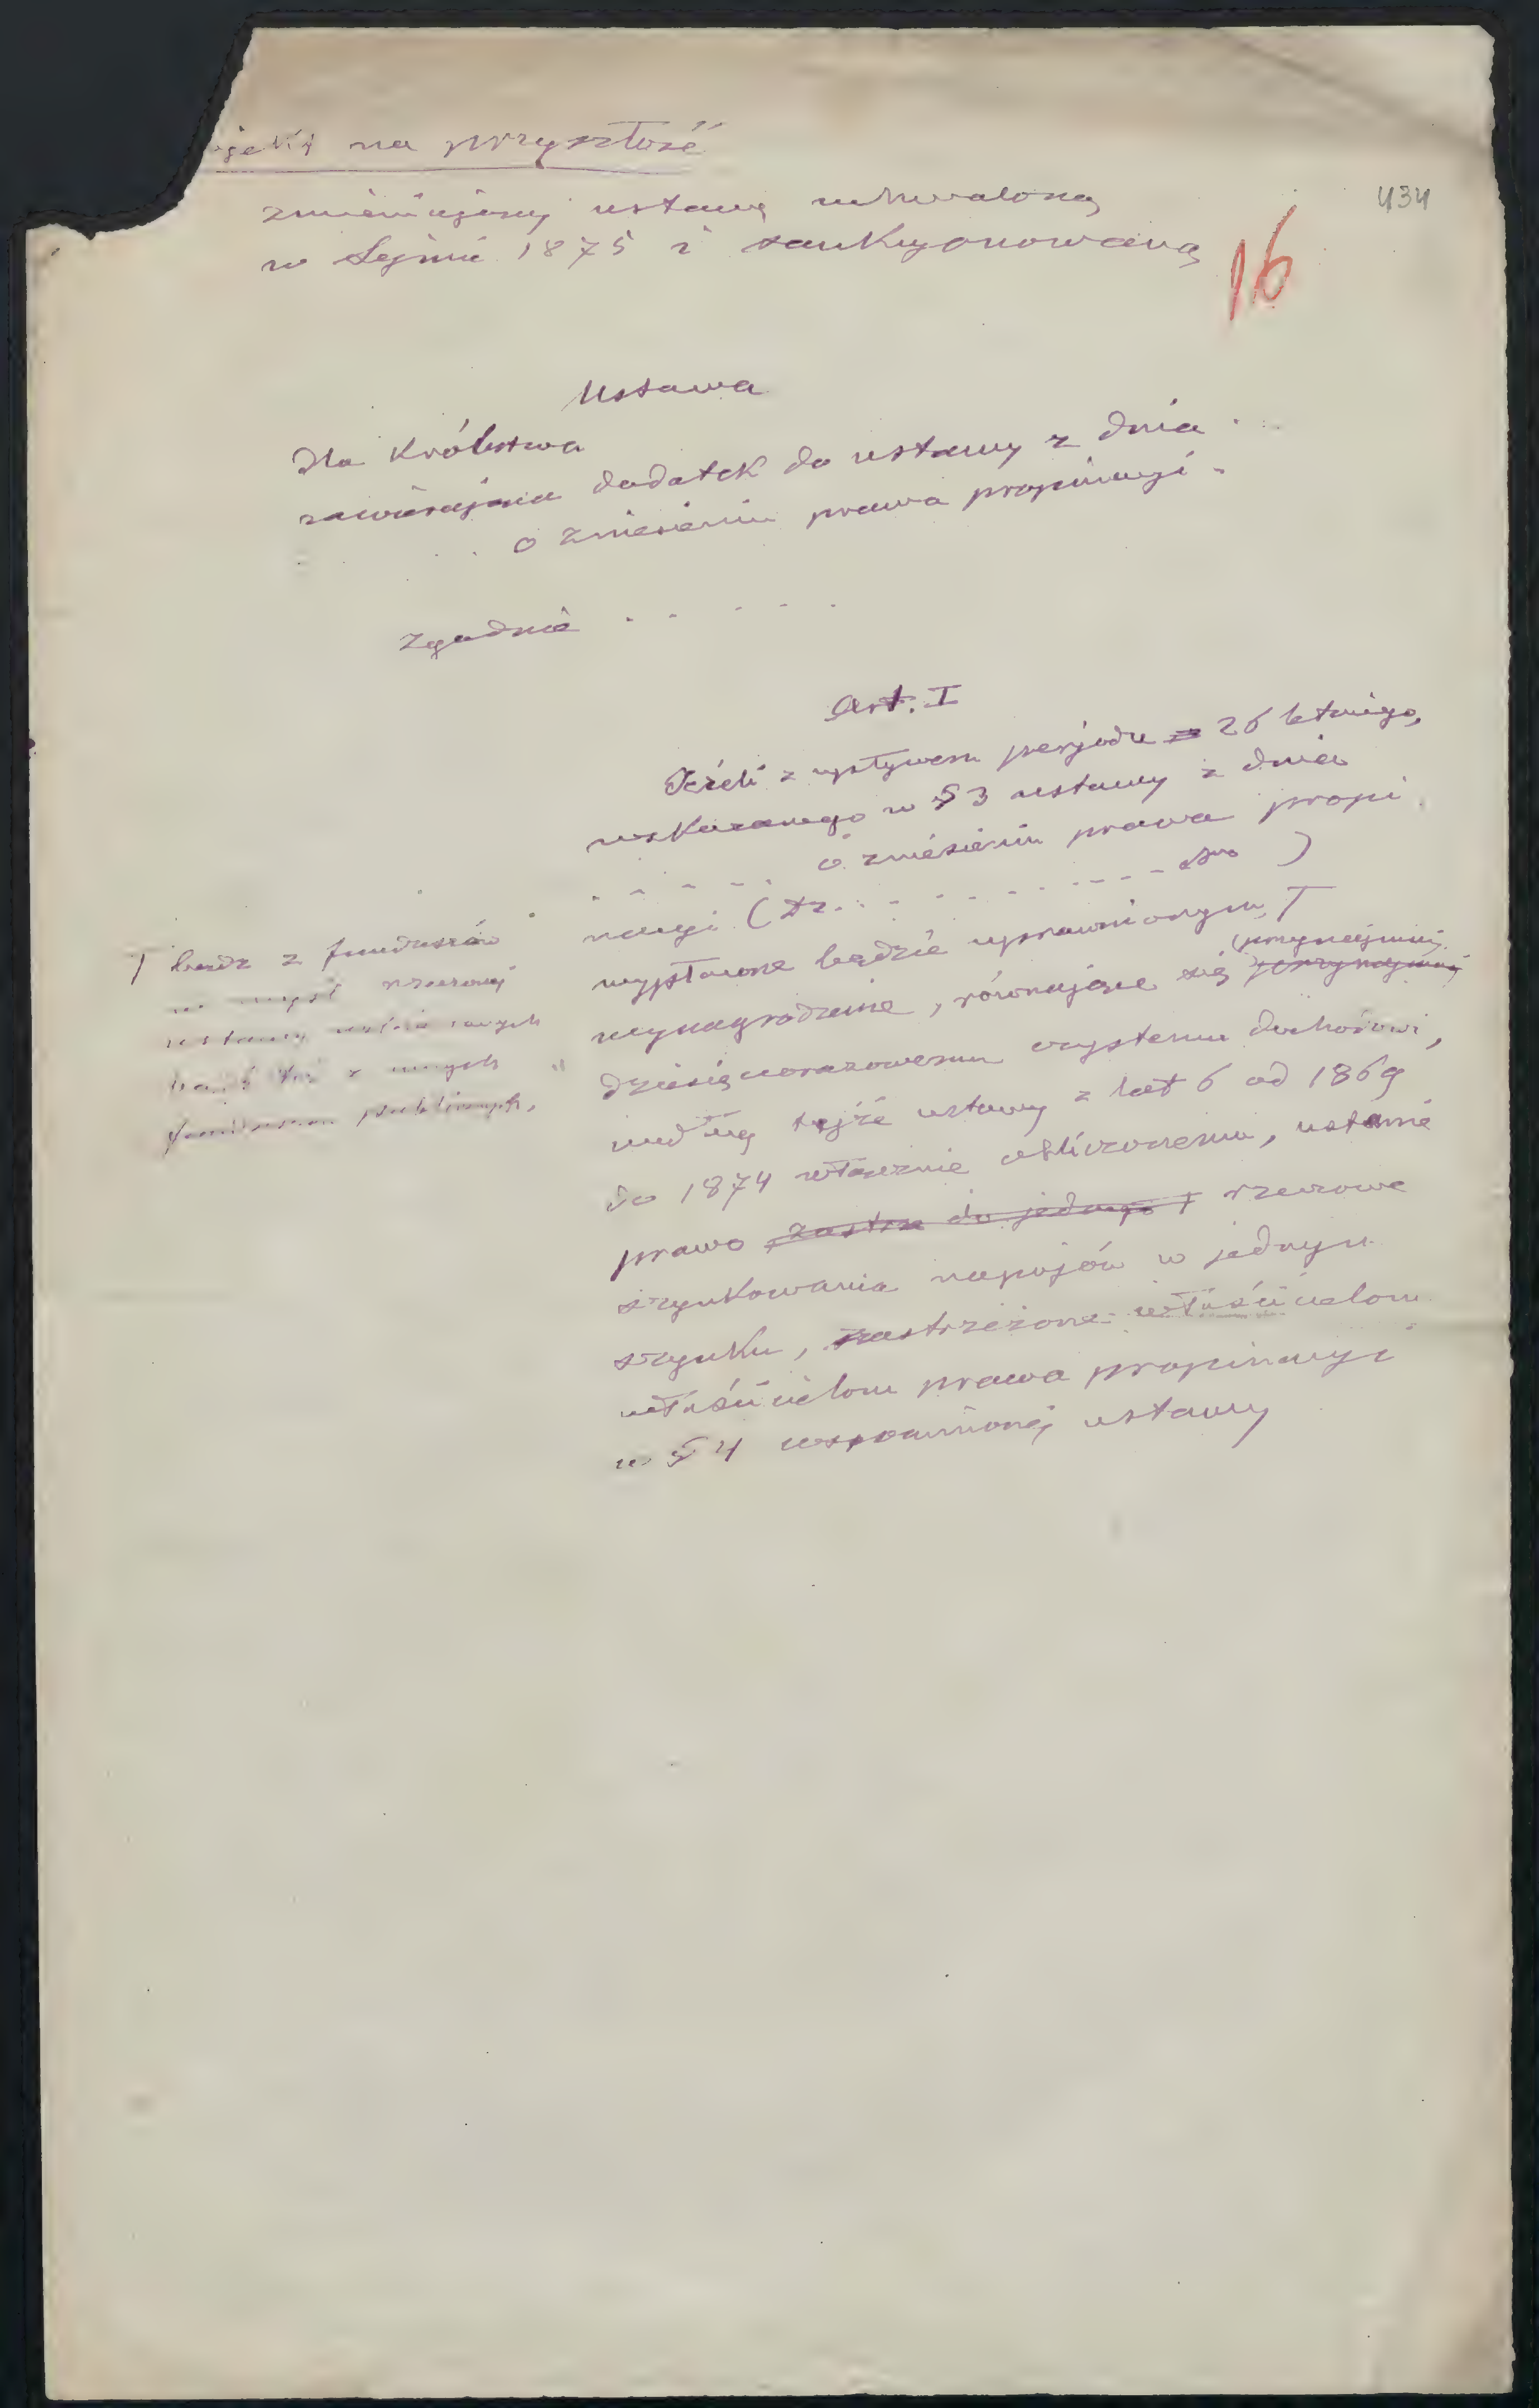 ojekt na przyszłość
zmieniającej ustawę uchwaloną
w Sejmie 1875 i sankcyonowaną
434
16
Ustawa
dla Królestwa
zawierająca dodatek do ustawy z dnia . .
. . o zniesieniu prawa propinacyi -
Zgodnie . - - - -
Art. I
Jeżeli z upływem peryodu 26 letniego,
wskazanego w § 3 ustawy z dnia
o zniesieniu prawa propi
nacyi (Dz. - - - - - - - - - )
wypłacone będzie uprawnionym T
(przynajmniej
wynagrodzenie, równające się przynajmniej
dziesięciorazowemu czystemu dochodowi,
według tejże ustawy z lat 6 od 1869
do 1874 włącznie obliczonemu, ustanie
prawo zastrz do jednego rzeczowe
szynkowania napojów w jednym
szynku, zastrzeżone właścicielom
właścicielom prawa propinacyi
w § 4 wspomnionej ustawy
T bądź z funduszów
w myśl rzeczonej
ustawy
bądź też z innych
funduszów publicznych,